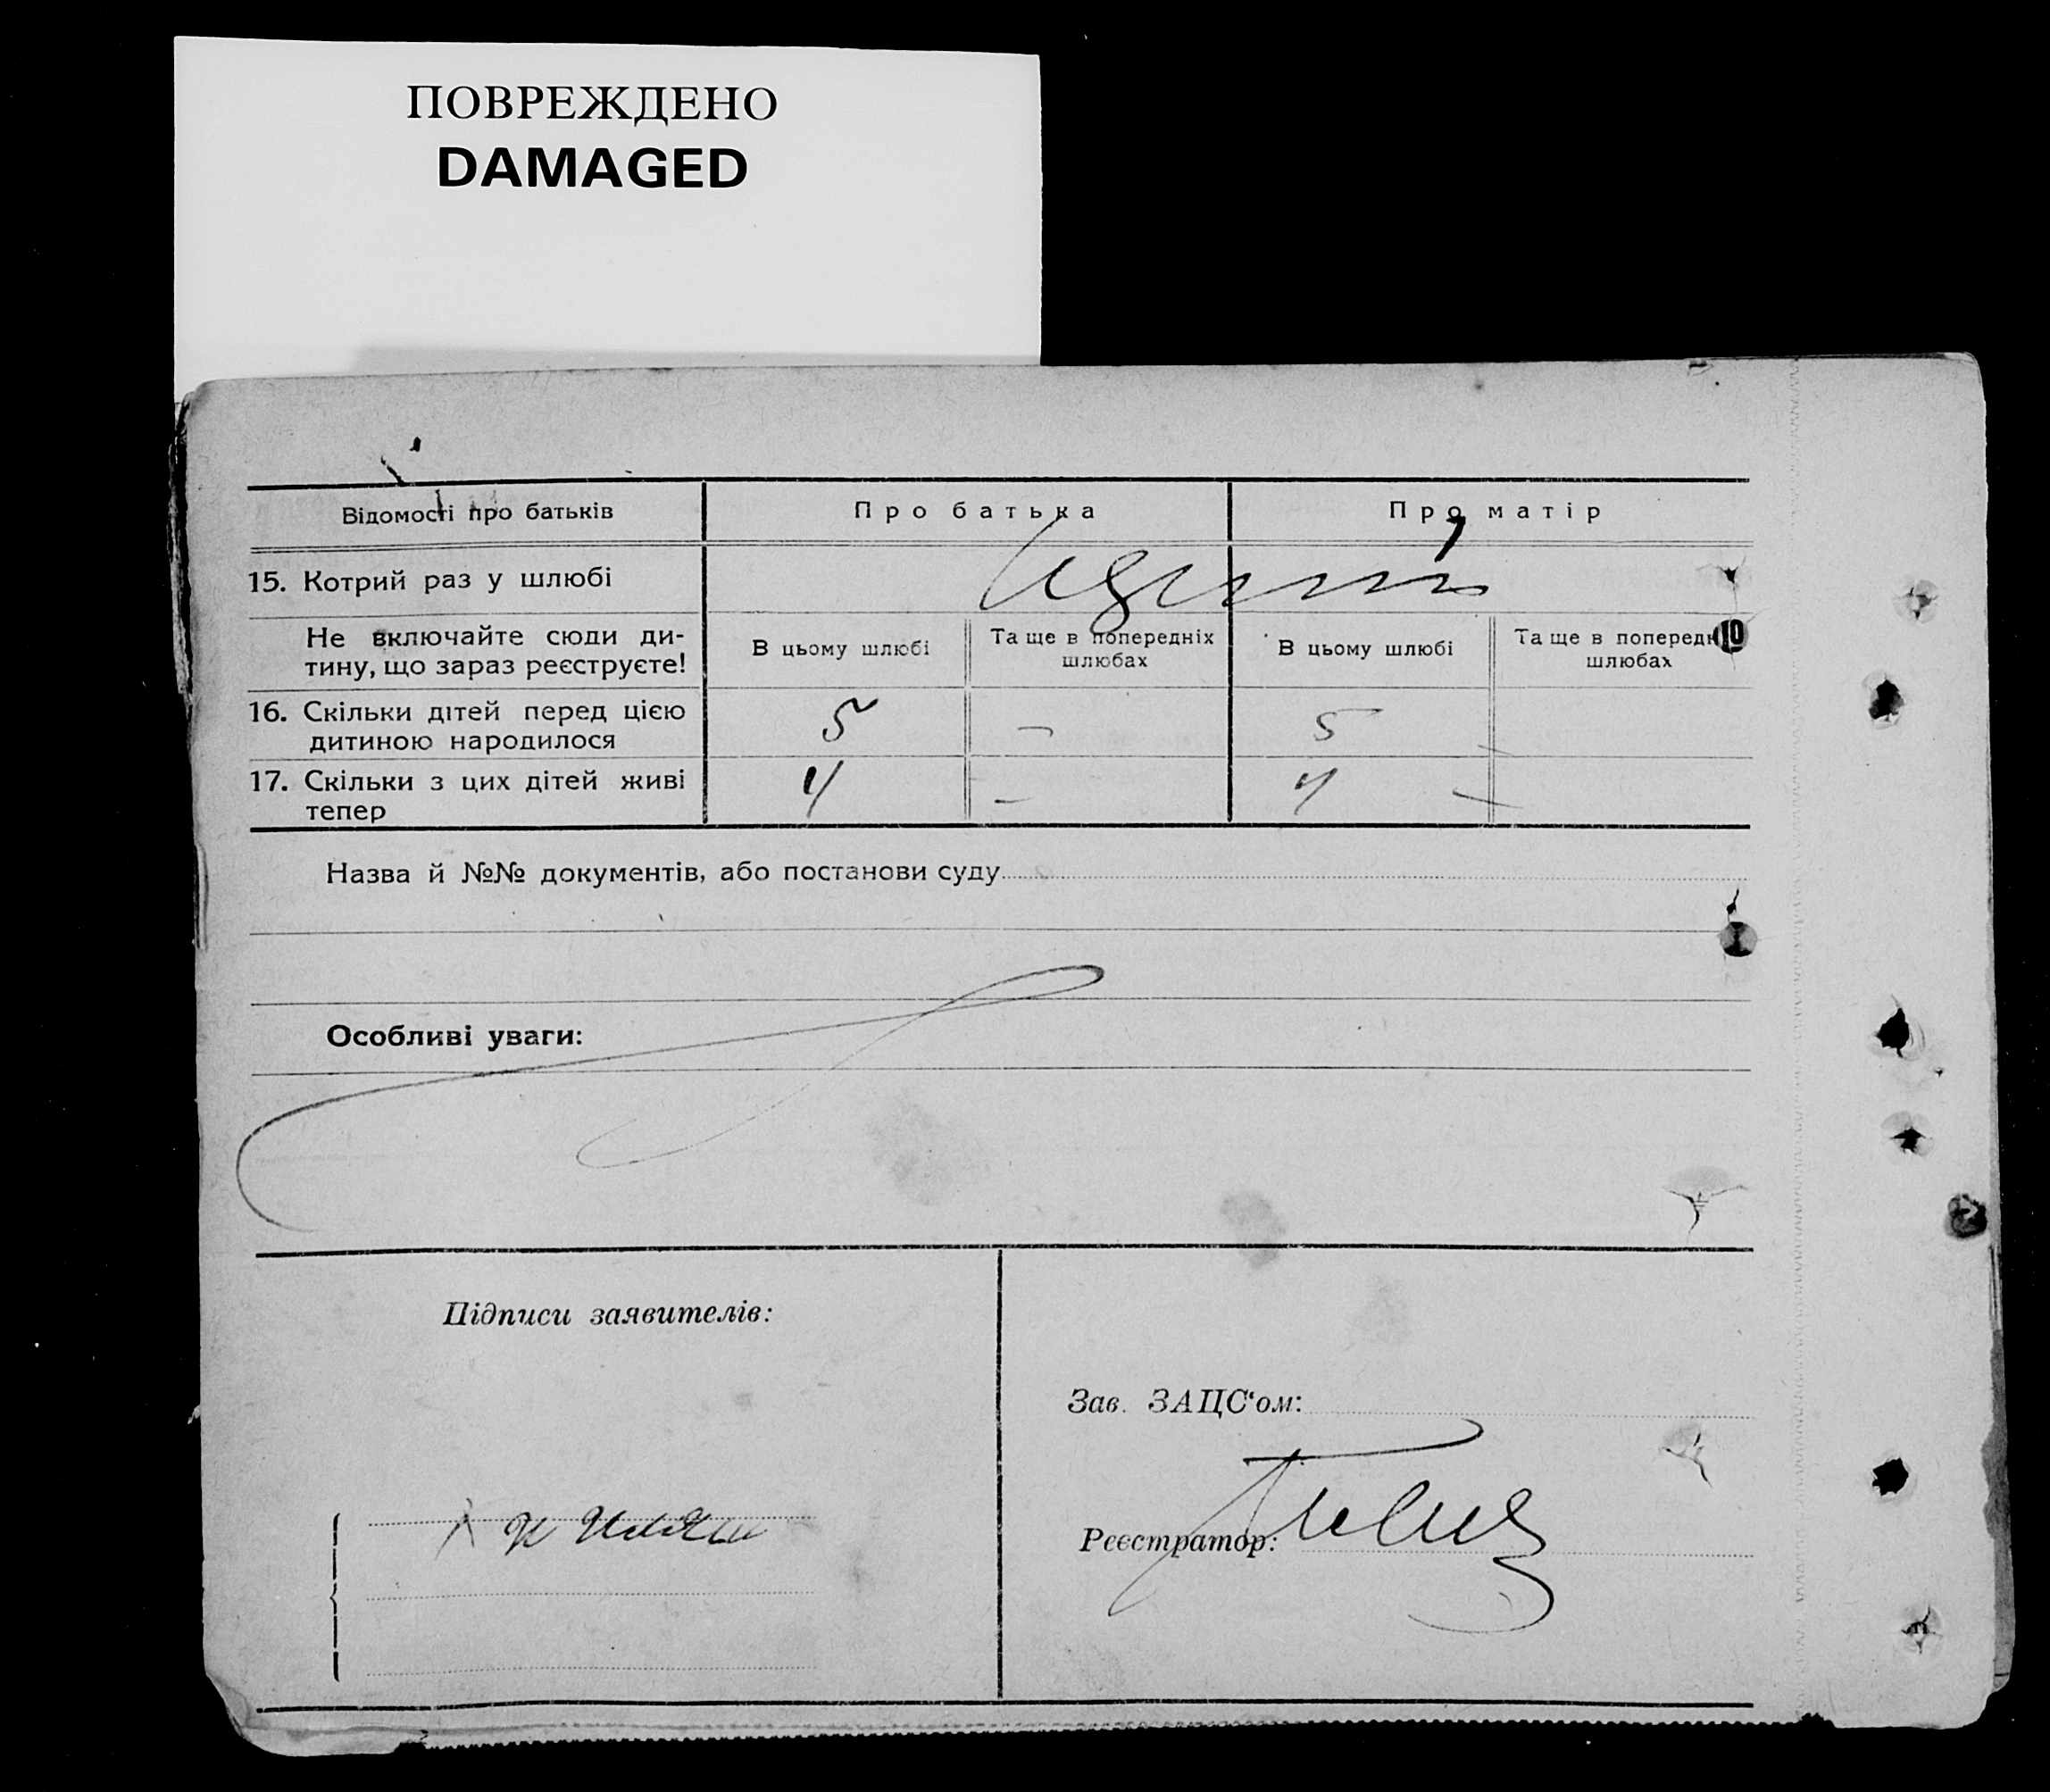 ПОВРЕЖДЕНО
DAMAGED
Відомості про батьків
Про батька
Про матір
15. Котрий раз у шлюбі
Не включайте сюди ди-
тину, що зараз реєструєте!
В цьому шлюбі
Та ще в попередніх
шлюбах
В цьому шлюбі
Та ще в
шлюбах
16. Скільки дітей перед цією
дитиною народилося
5 — 5 —
17. Скільки з цих дітей живі
тепер
4 — 4 —
Назва й №№ документів, або постанови суду
Особливі уваги:
Підписи заявителів:
Зав. ЗАЦС‘ом:
Реєстратор: